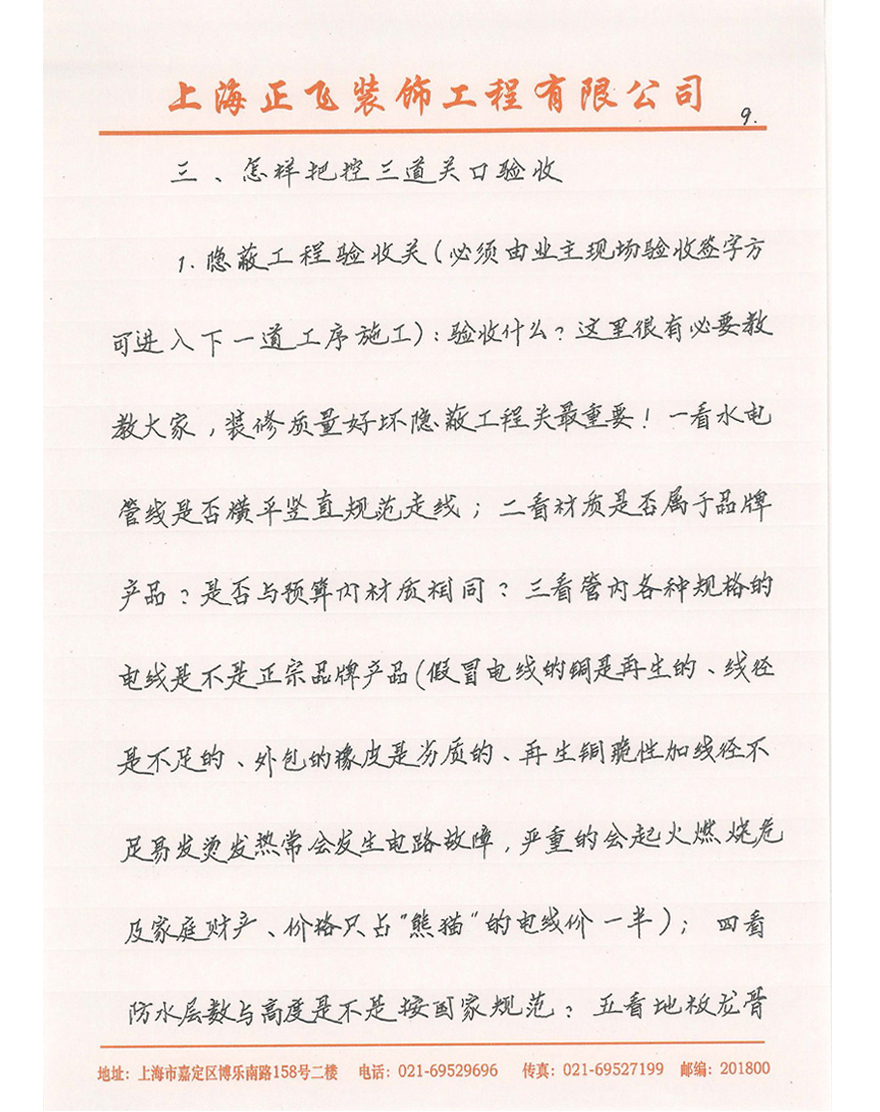 上海正飞装饰工程有限公司
9.
三、怎样把控三道关口验收
1.隐蔽工程验收关(必须由业主现场验收签字方
可进入下一道工序施工):验收什么?这里很有必要教
教大家,装修质量好坏隐蔽工程关最重要!一看水电
管线是否横平竖直规范走线;二看材质是否属于品牌
产品?是否与预算内材质相同?三看管内各种规格的
电线是不是正宗品牌产品(假冒电线的铜是再生的、线径
是不足的、外包的橡皮是劣质的、再生铜脆性加线径不
足易发烫发热常会发生电路故障,严重的会起火燃烧危
及家庭财产、价格只占"熊猫"的电线价一半);四看
防水层数与高度是不是按国家规范?五看地板龙骨
地址:上海市嘉定区博乐南路158号二楼 电话:021-69529696 传真:021-69527199 邮编:201800